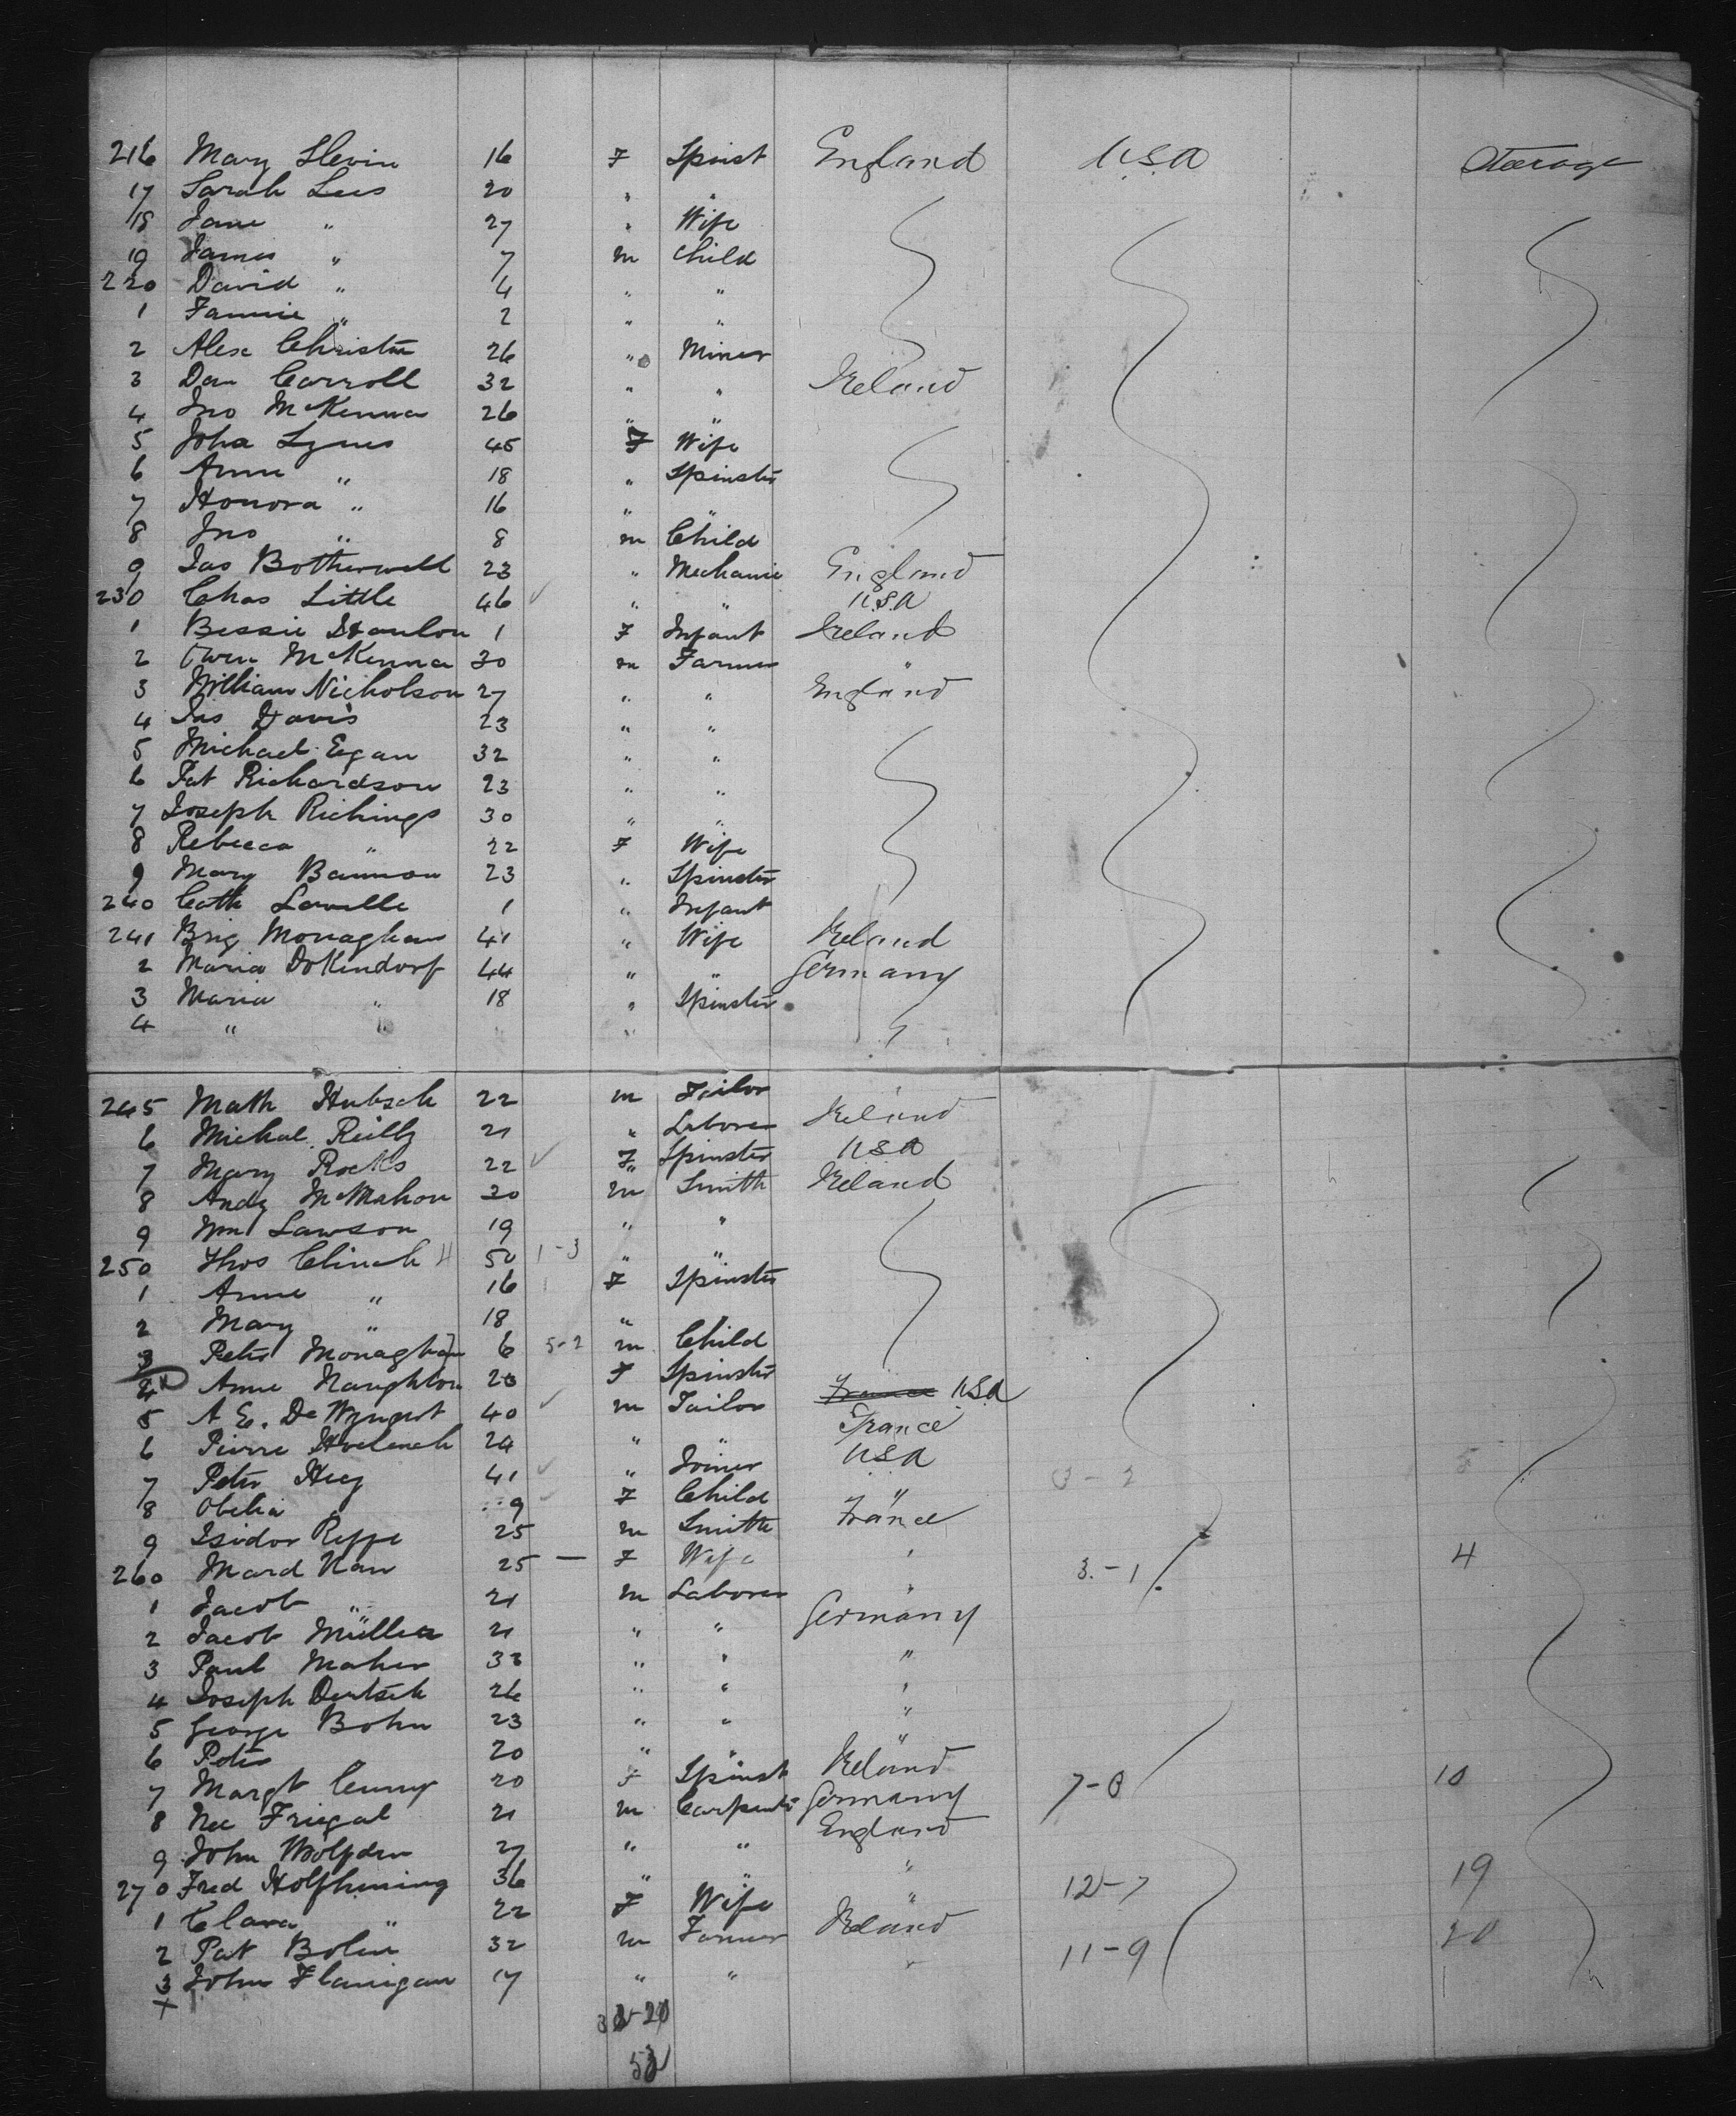 216 Mary Slevin 16 F Spinst England U.S.A Steerage
17 Sarah Lees 20 " "
18 Jane " 27 " Wife
19 James " 7 m Child
220 David " 4 " "
1 Fannie " 2 " "
2 Alex Christie 26 " Miner
3 Dan Carroll 32 " " Ireland
4 Jno McKenna 26 " "
5 Joha Lynes 45 F Wife
6 Anne " 18 " Spinster
7 Honora " 16 " "
8 Jno " 8 m Child
9 Jas Botherwell 23 " Mechanic England
230 Chas Little 46 " " U.S.A
1 Bessie Hanlon 1 F Infant Ireland
2 Owen McKenna 30 m Farmer "
3 William Nicholson 27 " " England
4 Jas Davis 23 " "
5 Michael Egan 32 " "
6 Pat Richardson 23 " "
7 Joseph Richings 30 " "
8 Rebecca " 22 F Wife
9 Mary Bannon 23 " Spinster
240 Cath Lavelle 1 " Infant
241 Brig Monaghan 41 " Wife Ireland
2 Maria Dokendorf 44 " " Germany
3 Maria " 18 " Spinster
4 " " "
245 Math Hubsch 22 m Tailor
6 Michal Reilly 21 " Laborer Ireland
7 Mary Rocks 22 F Spinster USA
8 Andy McMahon 30 m Smith Ireland
9 Wm Lawson 19 " "
250 Thos Clinch 50 1-3 " "
1 Anne " 16 F Spinster
2 Mary " 18 "
3 Peter Monaghan 6 5-2 m Child
4 Anne Naughton 20 F Spinster
5 A E. De 40 m Tailor France USA
6 Pierre 24 " " France
7 Peter Huy 41 " Joiner USA
8 Obelia " 9 F Child "
9 Isidor Reppe 25 m Smith France
260 Mard Nau 25 — F Wife " 3-1 4
1 Jacob " 21 m Laborer "
2 Jacob Müller 21 " " Germany
3 Paul Maher 33 " " "
4 Joseph Deutsch 26 " " "
5 George Bohn 23 " " "
6 Peter 20 " " "
7 Margt Cunny 20 F Spinst Ireland 7-8 10
8 Nec Friegal 21 m Carpenter Germany
9 John Wolfden 27 " " England
270 Fred Holphining 36 " " " 12-7 19
1 Clara " 22 F Wife "
2 Pat Bolin 32 m Farmer Ireland 11-9 20
3 John Flanigan 17 " " "